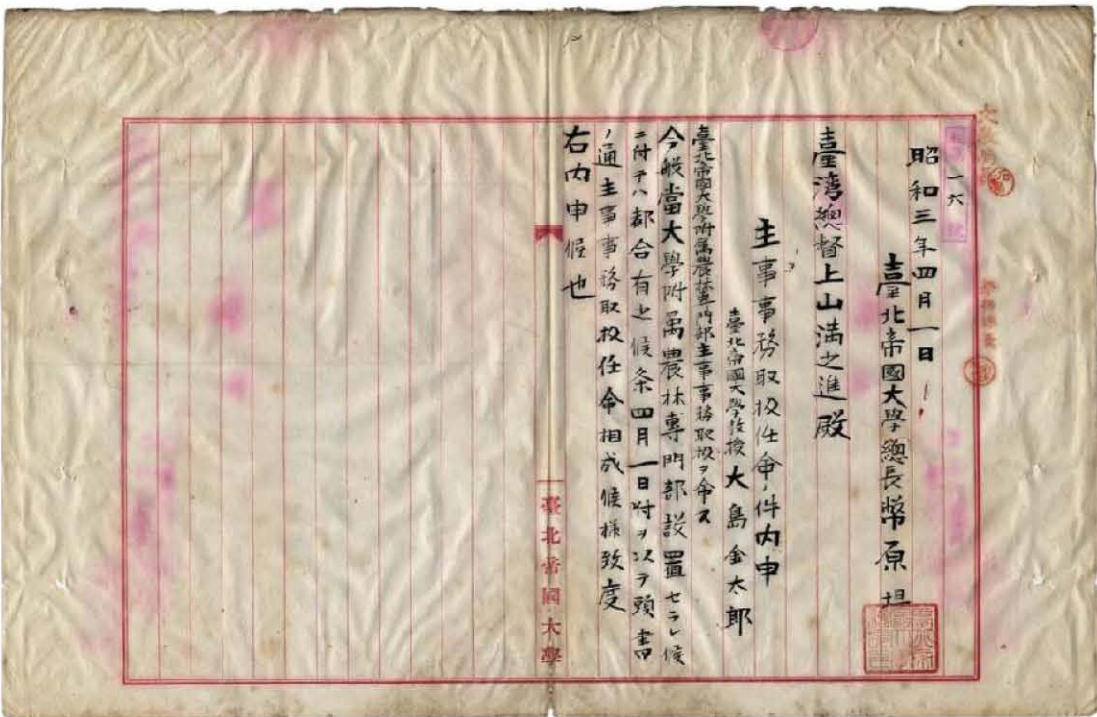 一六
昭和三年四月一日
臺北帝國大學總長幣原坦
臺灣總督上山満之進殿
主事事務取扱任命ノ件内申
臺北帝國大學教授 大島金太郎
臺北帝國大學附属農林専門部主事事務取扱ヲ命ス
今般當大學附属農林専門部設置セラレ候
ニ付テハ都合有之候条四月一日附ヲ以テ頭書
ノ通主事事務取扱任命相成候様致度
右内申候也
臺北帝國大學